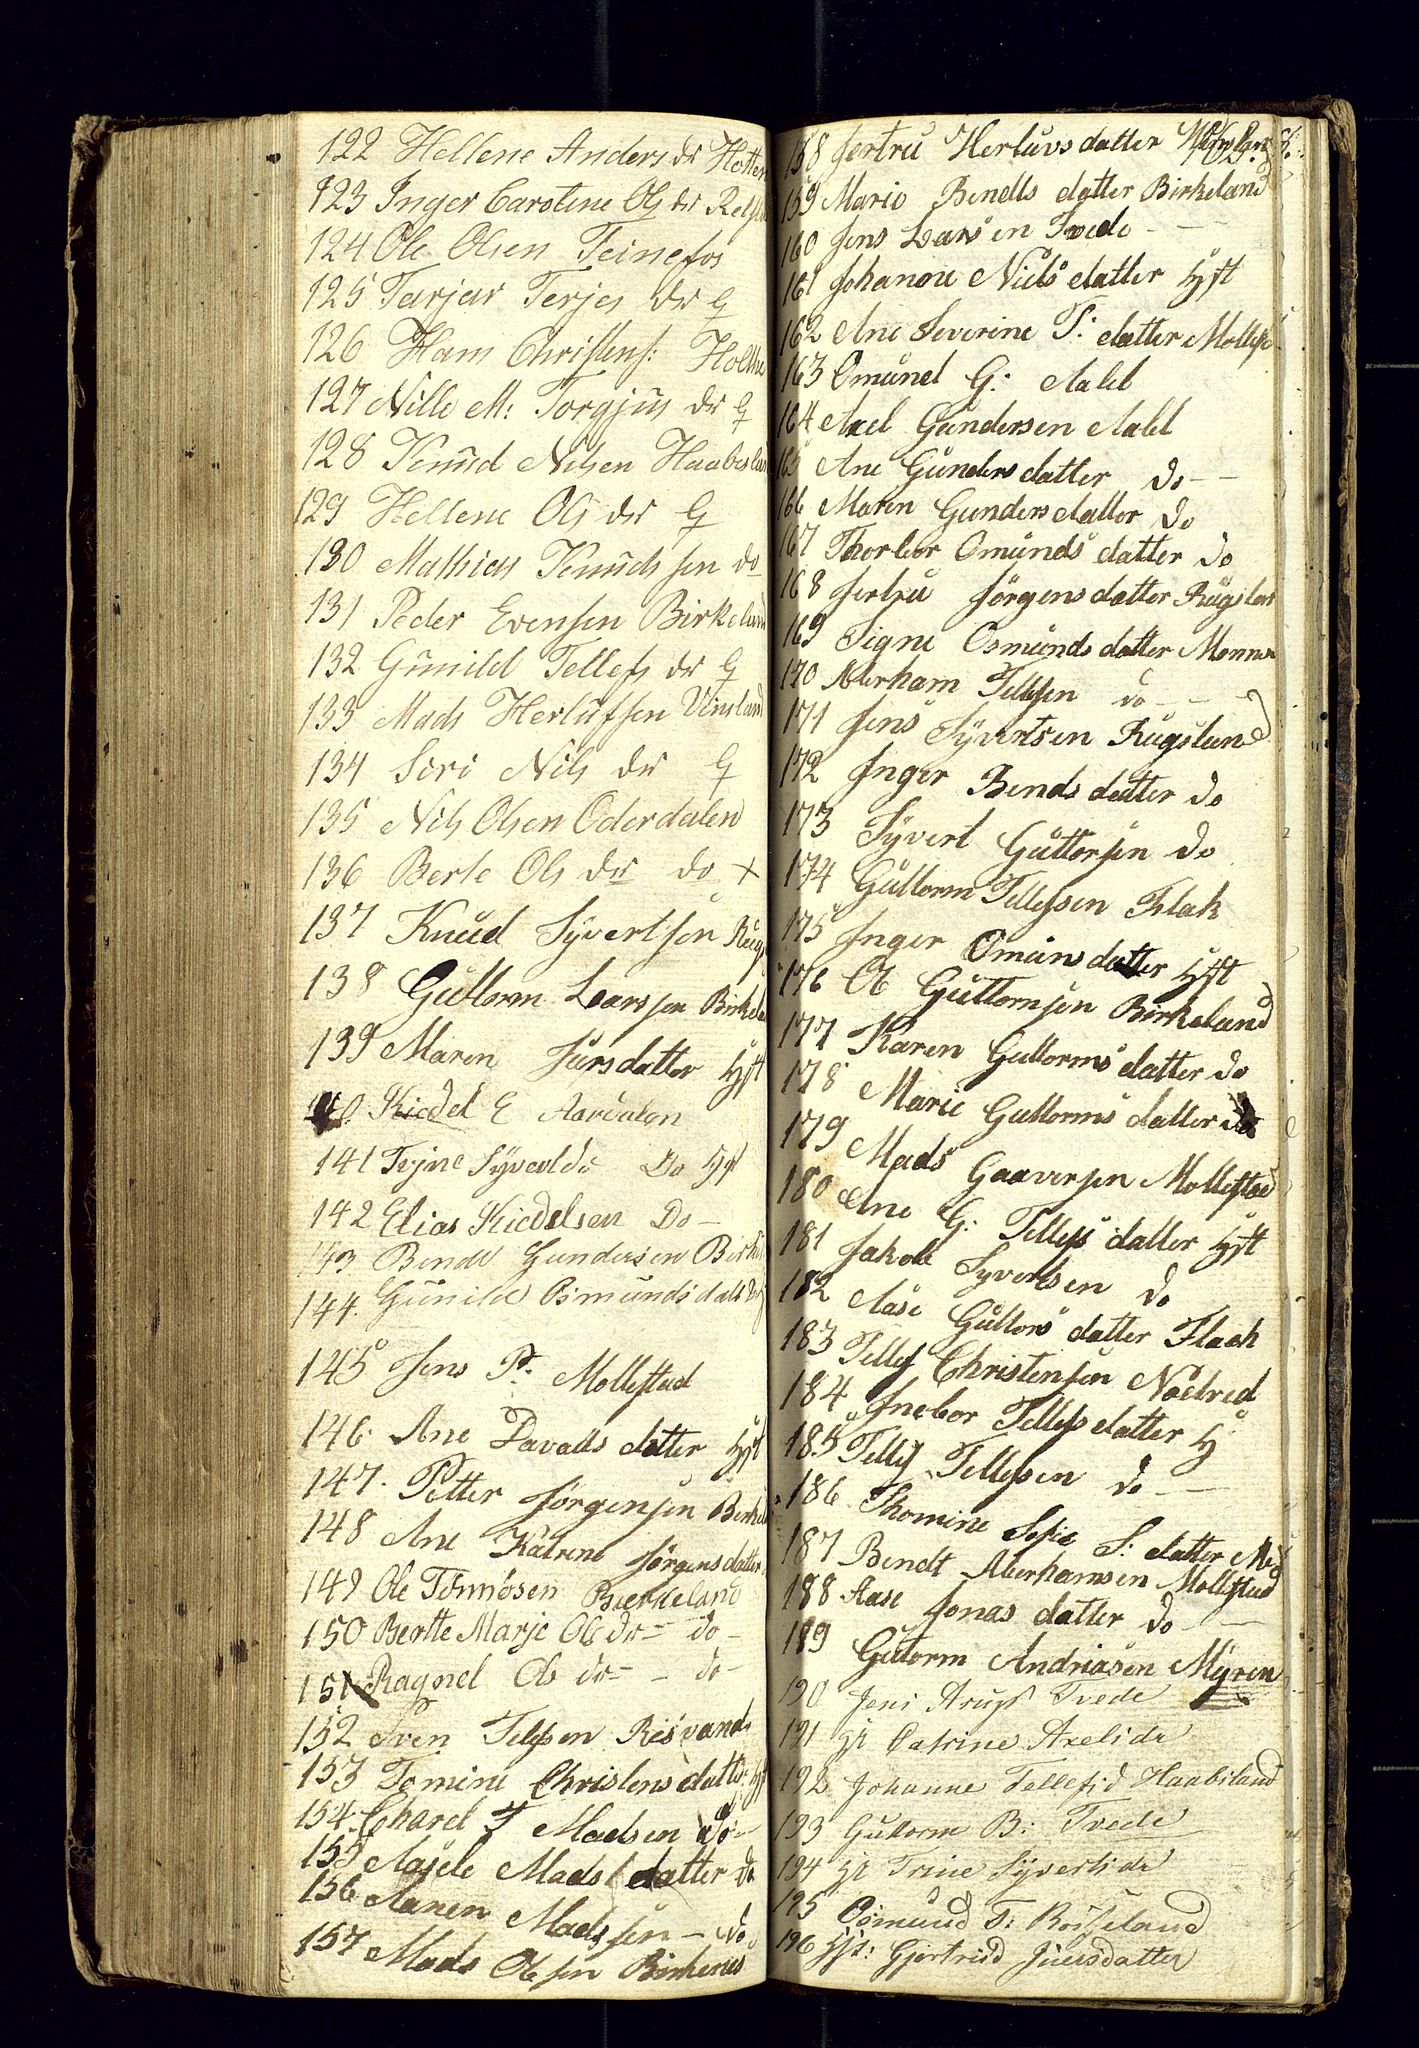 122 Hellene Anders dr Hetten
123 Inger Carotine Ols dr
124 Ole Olsen Teinefos
125 Tarjar Terjes dr G
126 Hans Christens: Holthe
127 Nille M: Torgjus dr G
128 Knud Nilsen Haabesland
129 Hellene Ols dr G
130 Mathias Knudssen do
131 Peder Evensen Birkeland
132 Gunild Tellefs dr G
133 Mads Herlufsen Vinsland
134 Siri Nils dr G
135 Nils Olsen Oderdalen
136 Berte Ols dr do x
137 Knud Syvertsen Rugs
138 Guttorm Larssen Birkela
139 Maren Jursdatter Hst
140 Kiedel E Aardalen
141 Tejne Syverdd Do Hst
142 Elias Kiedelsen Do -
143 Bendt Gundersen Birke
144. Gunild Osmunds datter
145 Jens P. Mollestad
146. Ane Davads datter Hst
147. Petter Jørgensen Birkel
148 Ane Katrine Jørgensdatter
149 Ole Tønnøsen Bierkeland
150 Bertte Marje Ols dr - do -
151 Ragnel Ols dr - - do -
152 Sven Telefsen Risvand
153 Tomine Christensdatter Hst
154. Charel T Madsen do -
155 Aasele Mads datter do
156 Aanen Madssen - do
157 Mads Olesen Birkenes
158 Jertru Herluvs datter
159 Marie Bendts datter Birkeland
160 Jens Larsen Tvede -
161 Johanne Niels datter Hst
162 Ane Severine T: datter Mollest
163 Omund G: Aabel
164 Axel Gundersen Aabel
165 Ane Gunders datter do - -
166 Maren Gundersdatter do
167 Thorbor Omunds datter do
168 Jertru Jørgensdatter Rugslan
169 Signe Osmunds datter Monne
170 Aberham Tellefsen do - -
171 Jens Syvertsen Rugsland
172 Inger Bends datter do
173 Syvert Guttorsen do
174 Guttorm Tellefsen Flak
175 Inger Omuns datter Hst
176 Ole Guttormsen Birkeland
177 Karen Guttorms datter do
178 Marie Guttorms datter do
179 Mads Gaaversen Mollestad
180 Ane G: Tellefs datter Hst
181 Jakob Syvertsen do
182 Aase Guttors datter Flaek
183 Tellef Christensen Nødred
184 Inebor Tellefs datter H
185 Tellef Tellefsen do -
186 Thomine Sofie S: datter
187 Bendt Aberhamsen Mollestad
188 Aase Jonas datter do - -
189 Gutorm Andriasen Myren
190 Jens Arups Tvede
191 Hr Catrine Axelsdr
192 Johanne Tellefsd Haabesland
193 Guttorm B: Tvede
194 Hr Trine Syvertsdr
195 Osmund T: Rosseland
196 Hst: Gjertridd Juersdatter